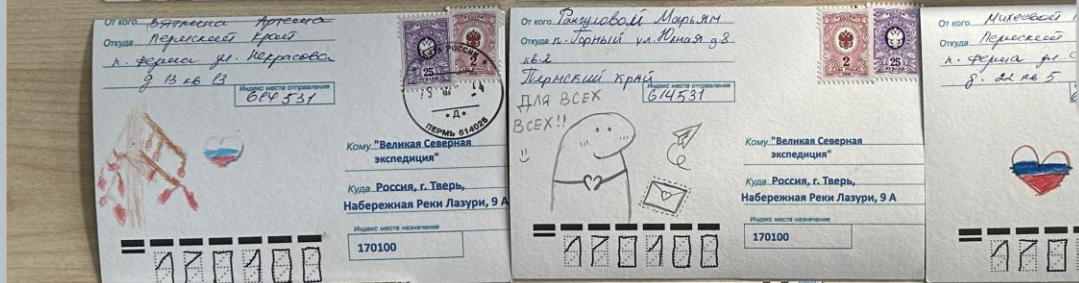 От кого Вяткина Артема
Откуда Пермский край
п. Ферма ул. Некрасова
д 13 кв 13
Индекс места отправления
614531
25
2
ПОЧТА РОССИИ
• Д •
ПЕРМЬ 614025
Кому "Великая Северная
экспедиция"
Куда Россия, г. Тверь,
Набережная Реки Лазури, 9 А
Индекс места назначения
170100
170100
От кого Рангуловой Марьям
Откуда п. Горный ул. Южная д-8
кв-2
Пермский край
Индекс места отправления
614531
2
25
ДЛЯ ВСЕХ
ВСЕХ!!
Кому "Великая Северная
экспедиция"
Куда Россия, г. Тверь,
Набережная Реки Лазури, 9 А
Индекс места назначения
170100
170100
От кого Михеевой
Откуда Пермский
п. Ферма ул.
д. 22 кв 5
170